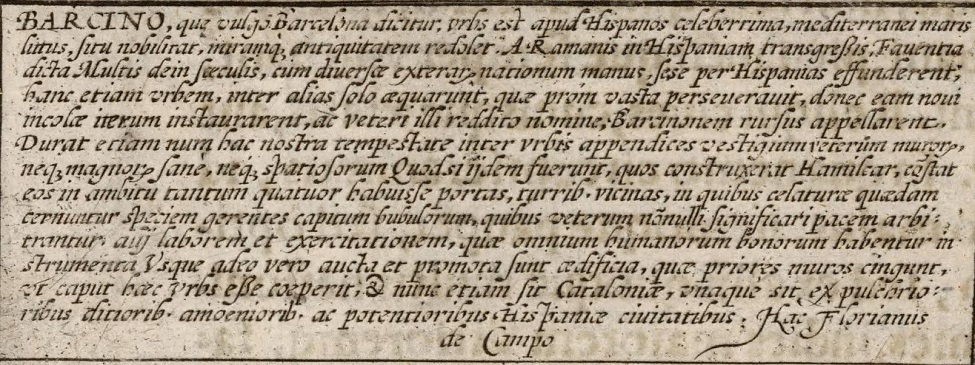 BARCINO, quę vulgò Barcelona dicitur, vrbs est apud Hispanos celeberrima, mediterranei maris
littus, situ nobilitat, miramq₃ antiquitatem redolet. A Ramanis in Hispaniam transgreßis, Fauentia
dicta Multis dein sæculis, cum diuersæ exterarꝝ nationum manus, sese per Hispanias effunderent,
hanc etiam vrbem, inter alias solo æquarunt, quæ proin vasta perseuerauit, donec eam noui
incolæ iterum instaurarent, ac veteri illi reddito nomine, Barcinonem rursus appellarent.
Durat etiam num hac nostra tempestate inter vrbis appendices vestigium veterum murorꝝ,
neq₃ magnorꝝ sanè, neq₃ spatiosorum Quod si ijdem fuerunt, quos construxerat Hamilcar, cõstat
eos in ambitu tantum quatuor habuisse portas, turrib. vicinas, in quibus celaturæ quædam
cernuntur speciem gerentes capitum bubulorum, quibus veterum nõnulli significari pacem arbi-
trantur. alij laborem et exercitationem, quæ omnium humanorum bonorum habentur in
strumenta, Vsque adeo vero aucta et promota sunt ædificia, quæ priores muros cingunt,
vt caput hæc vrbs eße coeperit, & nunc etiam sit Cataloniæ, vnaque sit ex pulchrio-
ribus ditiorib. amoeniorib. ac potentioribus Hispaniæ ciuitatibus. Hæc Florianus
de Campo